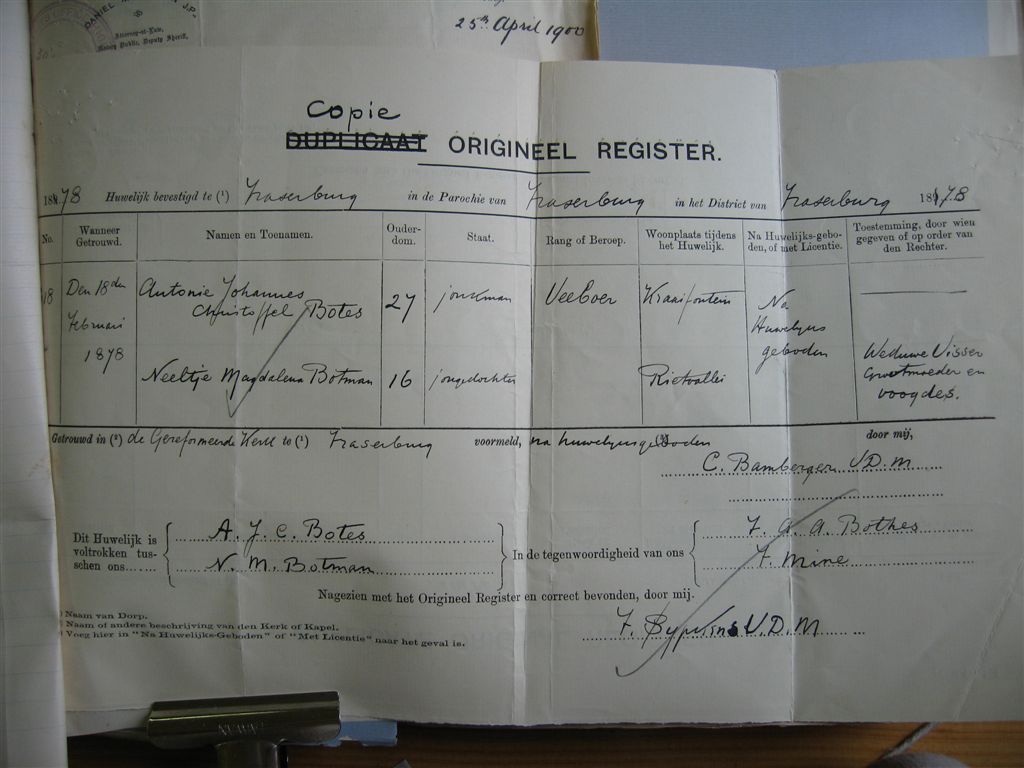 DANIEL
J.P.
Attorney-at-Law,
Notary Public, Deputy Sheriff.
25th April 1900
Copie
DUPLICAAT ORIGINEEL REGISTER.
1878 Huwelijk bevestigd te (1) Fraserburg in de Parochie van Fraserburg in het District van Fraserburg 1878
No. Wanneer Getrouwd. Namen en Toenamen. Ouder-dom. Staat. Rang of Beroep. Woonplaats tijdens het Huwelijk. Na Huwelijks-gebo-den, of met Licentie. Toestemming, door wien gegeven of op order van den Rechter.
18 Den 18den Februari 1878 Antonie Johannes Christoffel Botes 27 jonkman Veeboer Kraaifontein Na Huwelyks geboden
Neeltje Magdalena Botman 16 jongedochter Rietvallei Weduwe Visser Grootmoeder en voogdes.
Getrouwd in (2) de Gereformeerde Kerk te (1) Fraserburg voormeld, na huwelyksgeboden (3) door mij,
C. Bamberger V.D.M
Dit Huwelijk is voltrokken tus-schen ons...... A. J. C. Botes
N. M. Botman
In de tegenwoordigheid van ons F. A. A. Bothes
F. Mine
Nagezien met het Origineel Register en correct bevonden, door mij.
V.D.M
1) Naam van Dorp.
2) Naam of andere beschrijving van den Kerk of Kapel.
3) Voeg hier in "Na Huwelijks-Geboden" of "Met Licentie" naar het geval is.